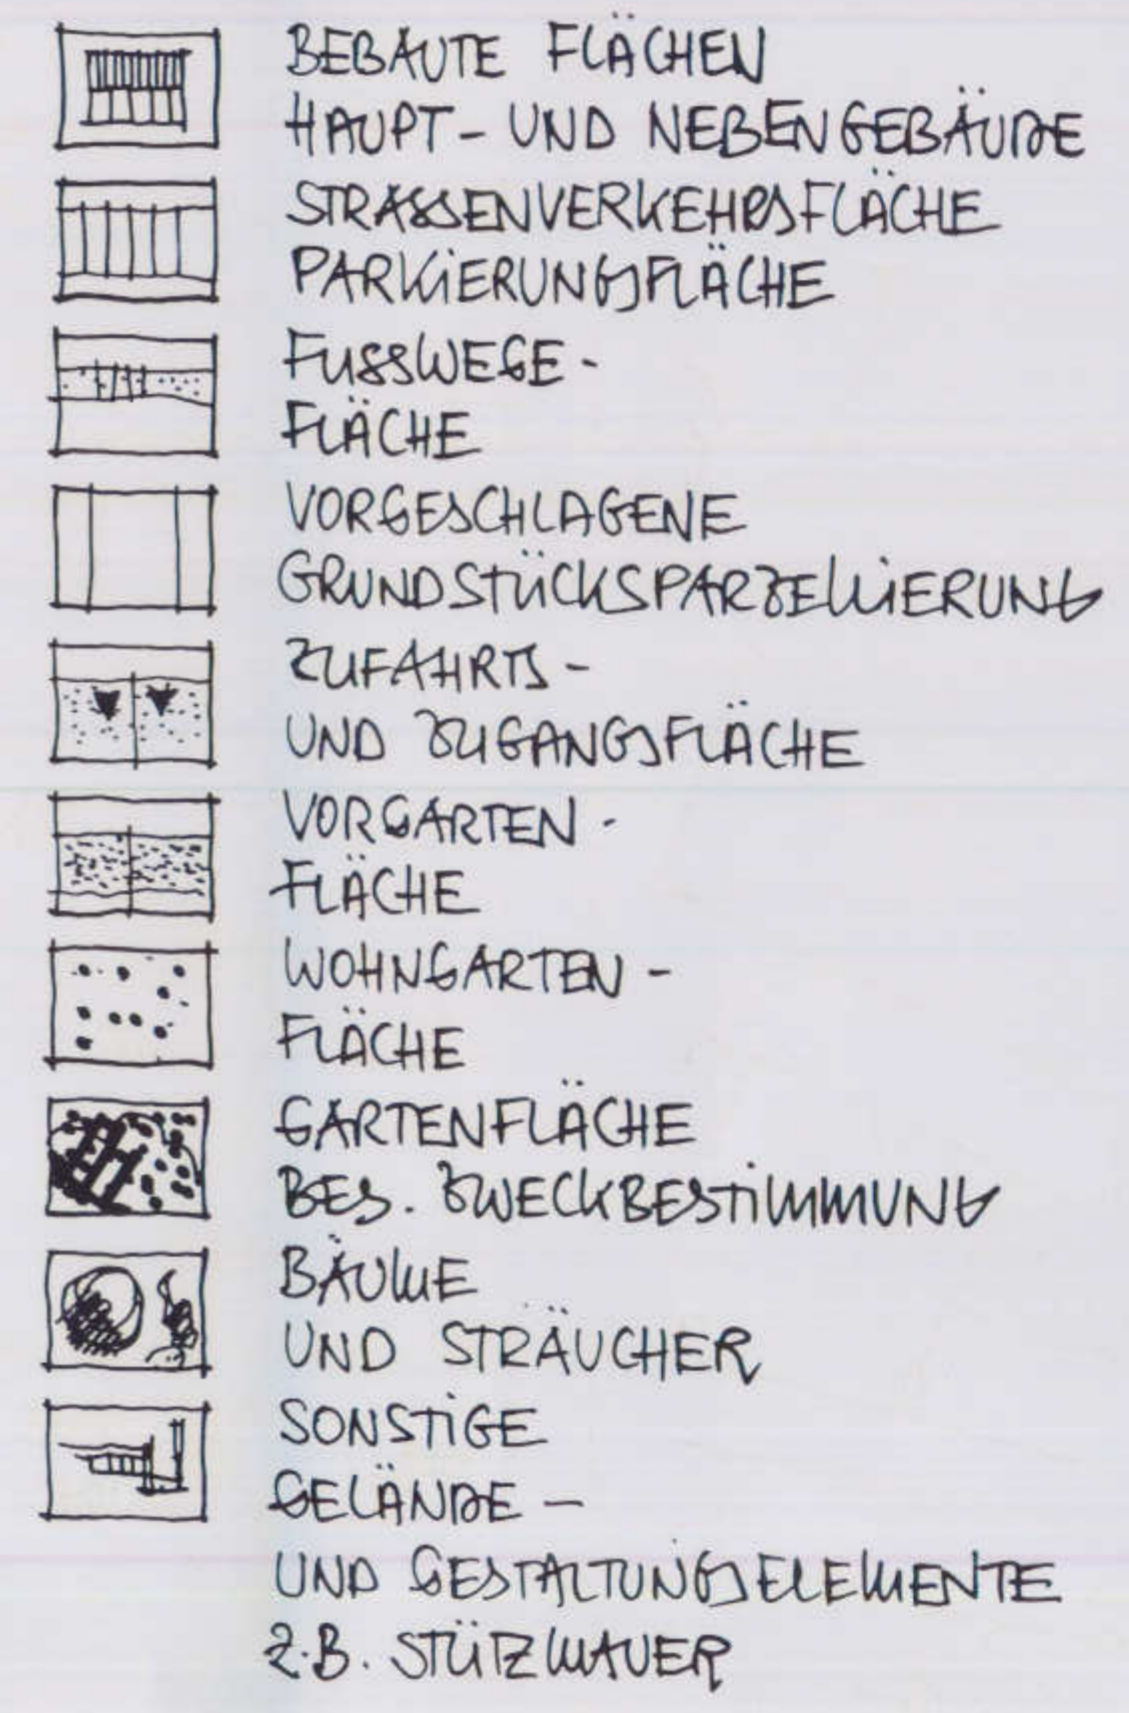 BEBAUTE FLÄCHEN
HAUPT- UND NEBENGEBÄUDE
STRASSENVERKEHRSFLÄCHE
PARKIERUNGSFLÄCHE
FUSSWEGE-
FLÄCHE
VORGESCHLAGENE
GRUNDSTÜCKSPARZELLIERUNG
ZUFAHRTS-
UND ZUGANGSFLÄCHE
VORGARTEN-
FLÄCHE
WOHNGARTEN-
FLÄCHE
GARTENFLÄCHE
BES. ZWECKBESTIMMUNG
BÄUME
UND STRÄUCHER
SONSTIGE
GELÄNDE-
UND GESTALTUNGSELEMENTE
Z.B. STÜTZMAUER